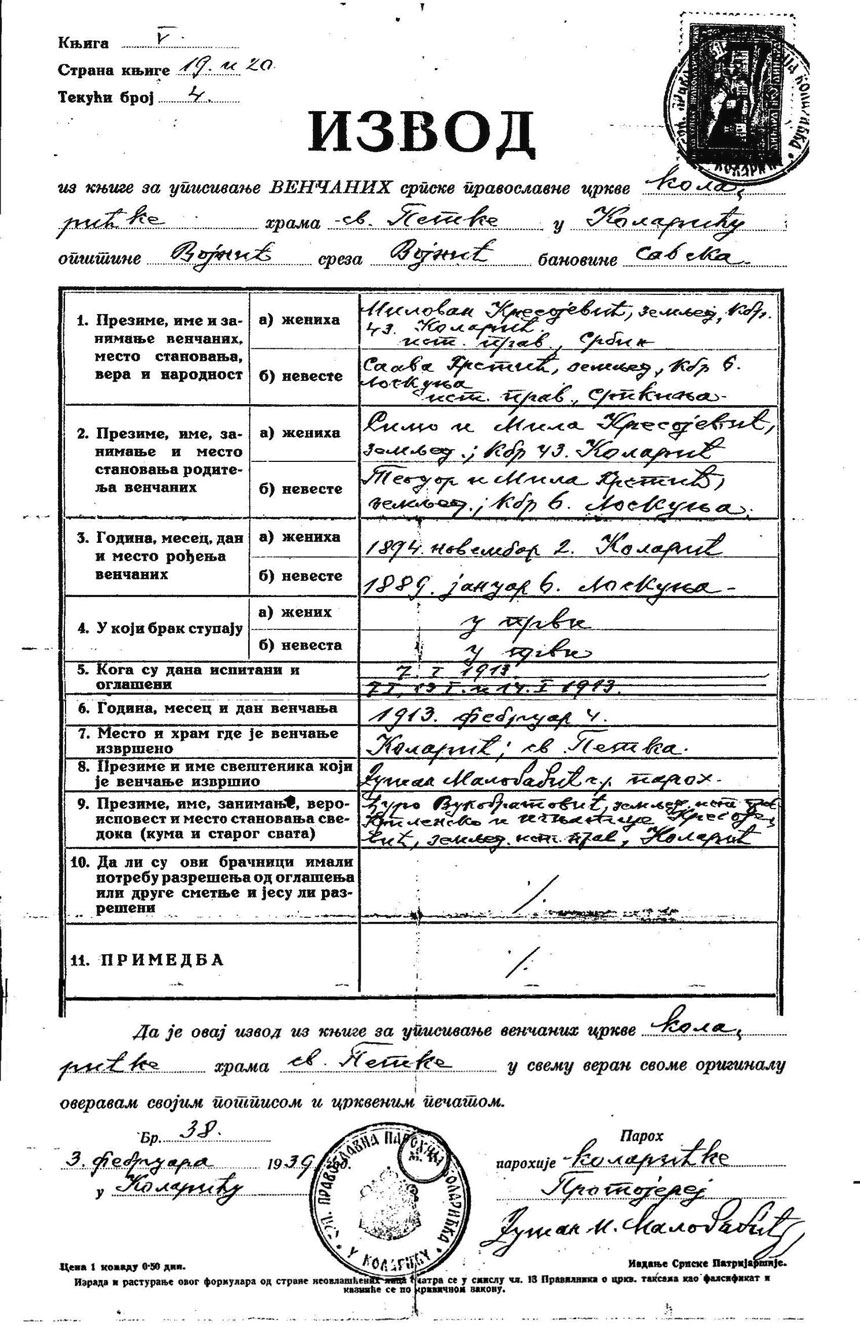 Књига V
Страна књиге 19. и 20
Текући број 4.
ИЗВОД
из књиге за уписивање ВЕНЧАНИХ српске православне цркве кола-
рићке храма св. Петке у Коларићу
општине Војнић среза Војнић бановине савска
1. Презиме, име и за-
нимање венчаних,
место становања,
вера и народност
а) жениха
Милован Кресојевић, земљед, Кбр.
43. Коларић.
ист. прав., Србин
б) невесте
Саава Крстић, земљед, Кбр 6.
Лоскуња
ист. прав., Српкиња
2. Презиме, име, за-
нимање и место
становања родите-
ља венчаних
а) жениха
Симо и Мила Кресојевић,
земљед.; Кбр 43. Коларић
б) невесте
Теодор и Мила Крстић,
земљед.; Кбр 6. Лоскуња.
3. Година, месец, дан
и место рођења
венчаних
а) жениха
1894. новембор 2. Коларић
б) невесте
1889. јануар 6. Лоскуња
4. У који брак ступају
а) жених
у први
б) невеста
у први
5. Кога су дана испитани и
оглашени
7. I 1913.
7 I, 13 I. и 14. I 1913.
6. Година, месец и дан венчања
1913. фебруар 4.
7. Место и храм где је венчање
извршено
Коларић; св Петка.
8. Презиме и име свештеника који
је венчање извршио
Душан Малобабић парох.
9. Презиме, име, занимање, веро-
исповест и место становања све-
дока (кума и старог свата)
Ђуро Вукобратовић, земљед. ист
и Кресоје-
вић, земљед. ист. прав, Коларић
10. Да ли су ови брачници имали
потребу разрешења од оглашења
или друге сметње и јесу ли раз-
решени
·/.
11. ПРИМЕДБА
·/.
Да је овај извод из књиге за уписивање венчаних цркве кола-
рићке храма св. Петке у свему веран своме оригиналу
оверавам својим потписом и црквеним печатом.
Бр. 38.
3. фебруара 1939 год.
у Коларићу
СРП. ПРАВОСЛАВНА ПАРОХИЈА КОЛАРИЋКА
У КОЛАРИЋУ
Парох
парохије коларићке
Протојереј
Душан М. Малобабић
Цена 1 комаду 0·50 дин.
Издање Српске Патријаршије.
Израда и растурање овог формулара од стране неовлашћених лица сматра се у смислу чл. 13 Правилника о цркв. таксама као фалсификат и
казниће се по кривичном закону.